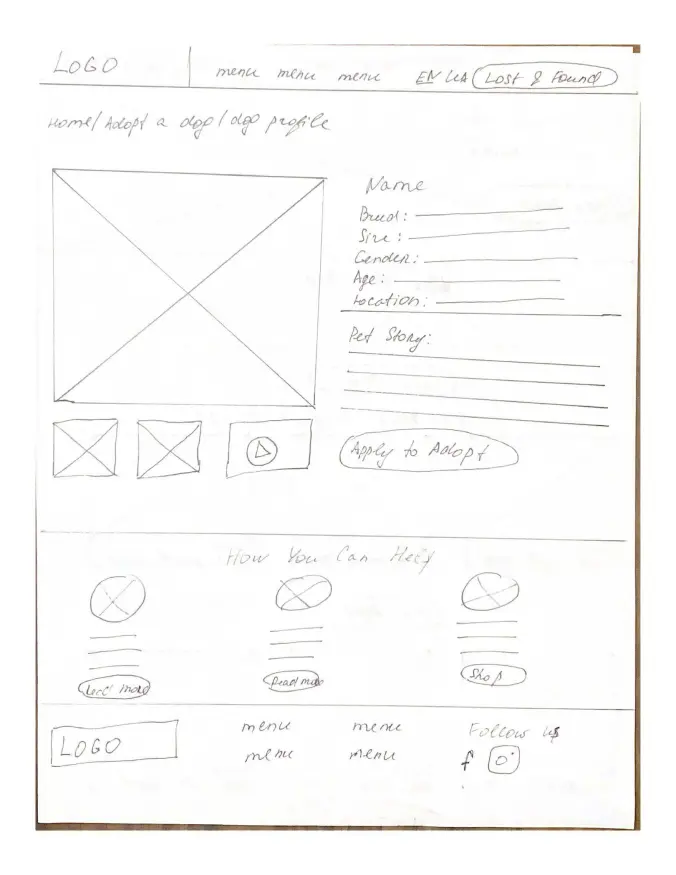 LOGO menu menu menu EN UA Lost & Found
Home/ Adopt a dog / dog profile
Name
Breed:
Size:
Gender:
Age:
Location:
Pet Story:
Apply to Adopt
How You Can Help
Read more Read more Shop
LOGO menu menu Follow us
menu menu f